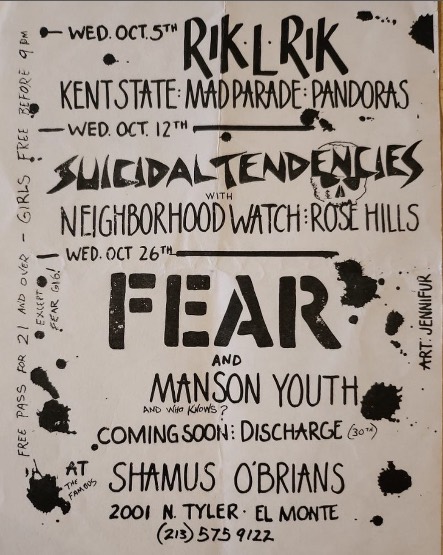 WED. OCT. 5TH
RIK·L·RIK
KENT STATE: MAD PARADE: PANDORAS
WED. OCT. 12TH
SUICIDAL TENDENCIES
WITH
NEIGHBORHOOD WATCH: ROSE HILLS
WED. OCT 26TH
FEAR
AND
MANSON YOUTH
AND WHO KNOWS?
COMING SOON: DISCHARGE (30TH)
AT
THE FAMOUS
SHAMUS O'BRIANS
2001 N. TYLER · EL MONTE
(213) 575 9122
FREE PASS FOR 21 AND OVER - GIRLS FREE BEFORE 9 PM
EXCEPT
FEAR GIG!
ART: JENNIFUR